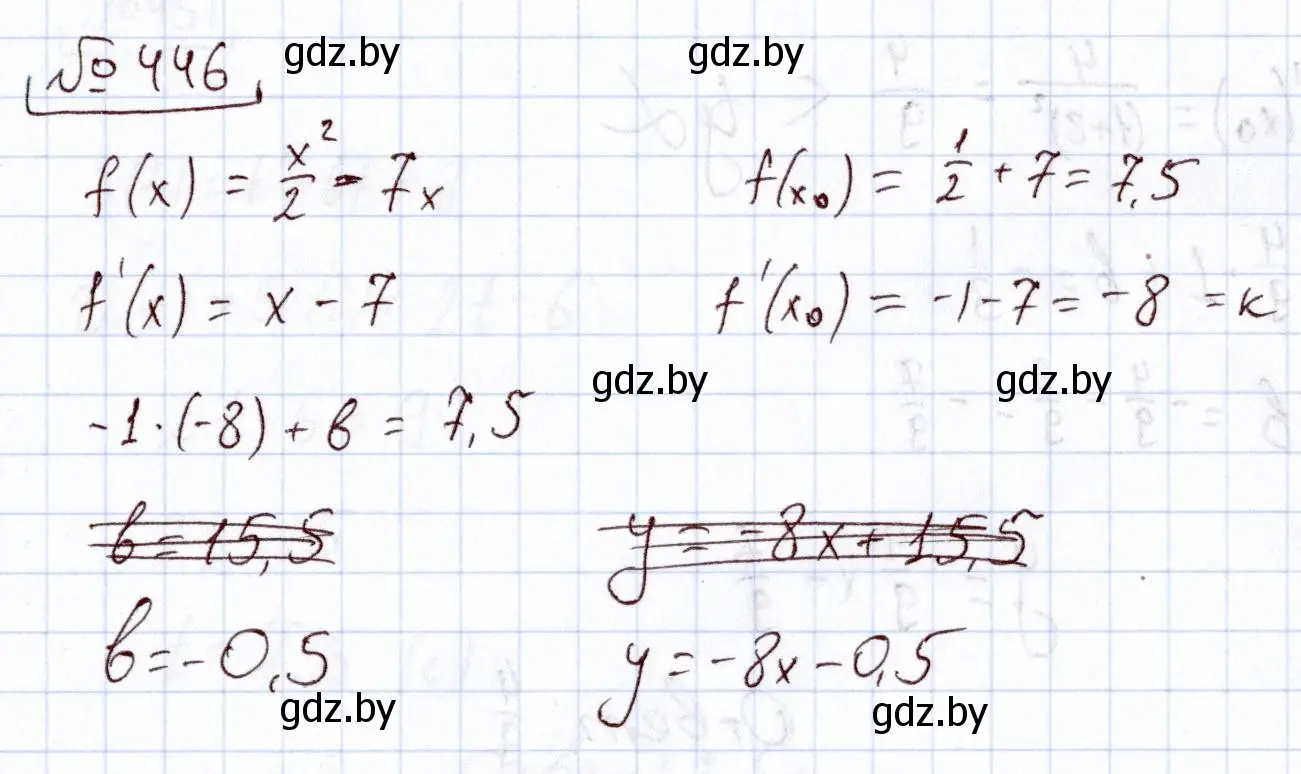 № 446 gdz.by gdz.by
f(x) = x²/2 - 7x f(x₀) = 1/2 + 7 = 7,5
f'(x) = x - 7 f'(x₀) = -1-7 = -8 = к
gdz.by gdz.by
-1·(-8) + в = 7,5
в = 15,5 y = -8x + 15,5
в = -0,5 y = -8x - 0,5
gdz.by gdz.by